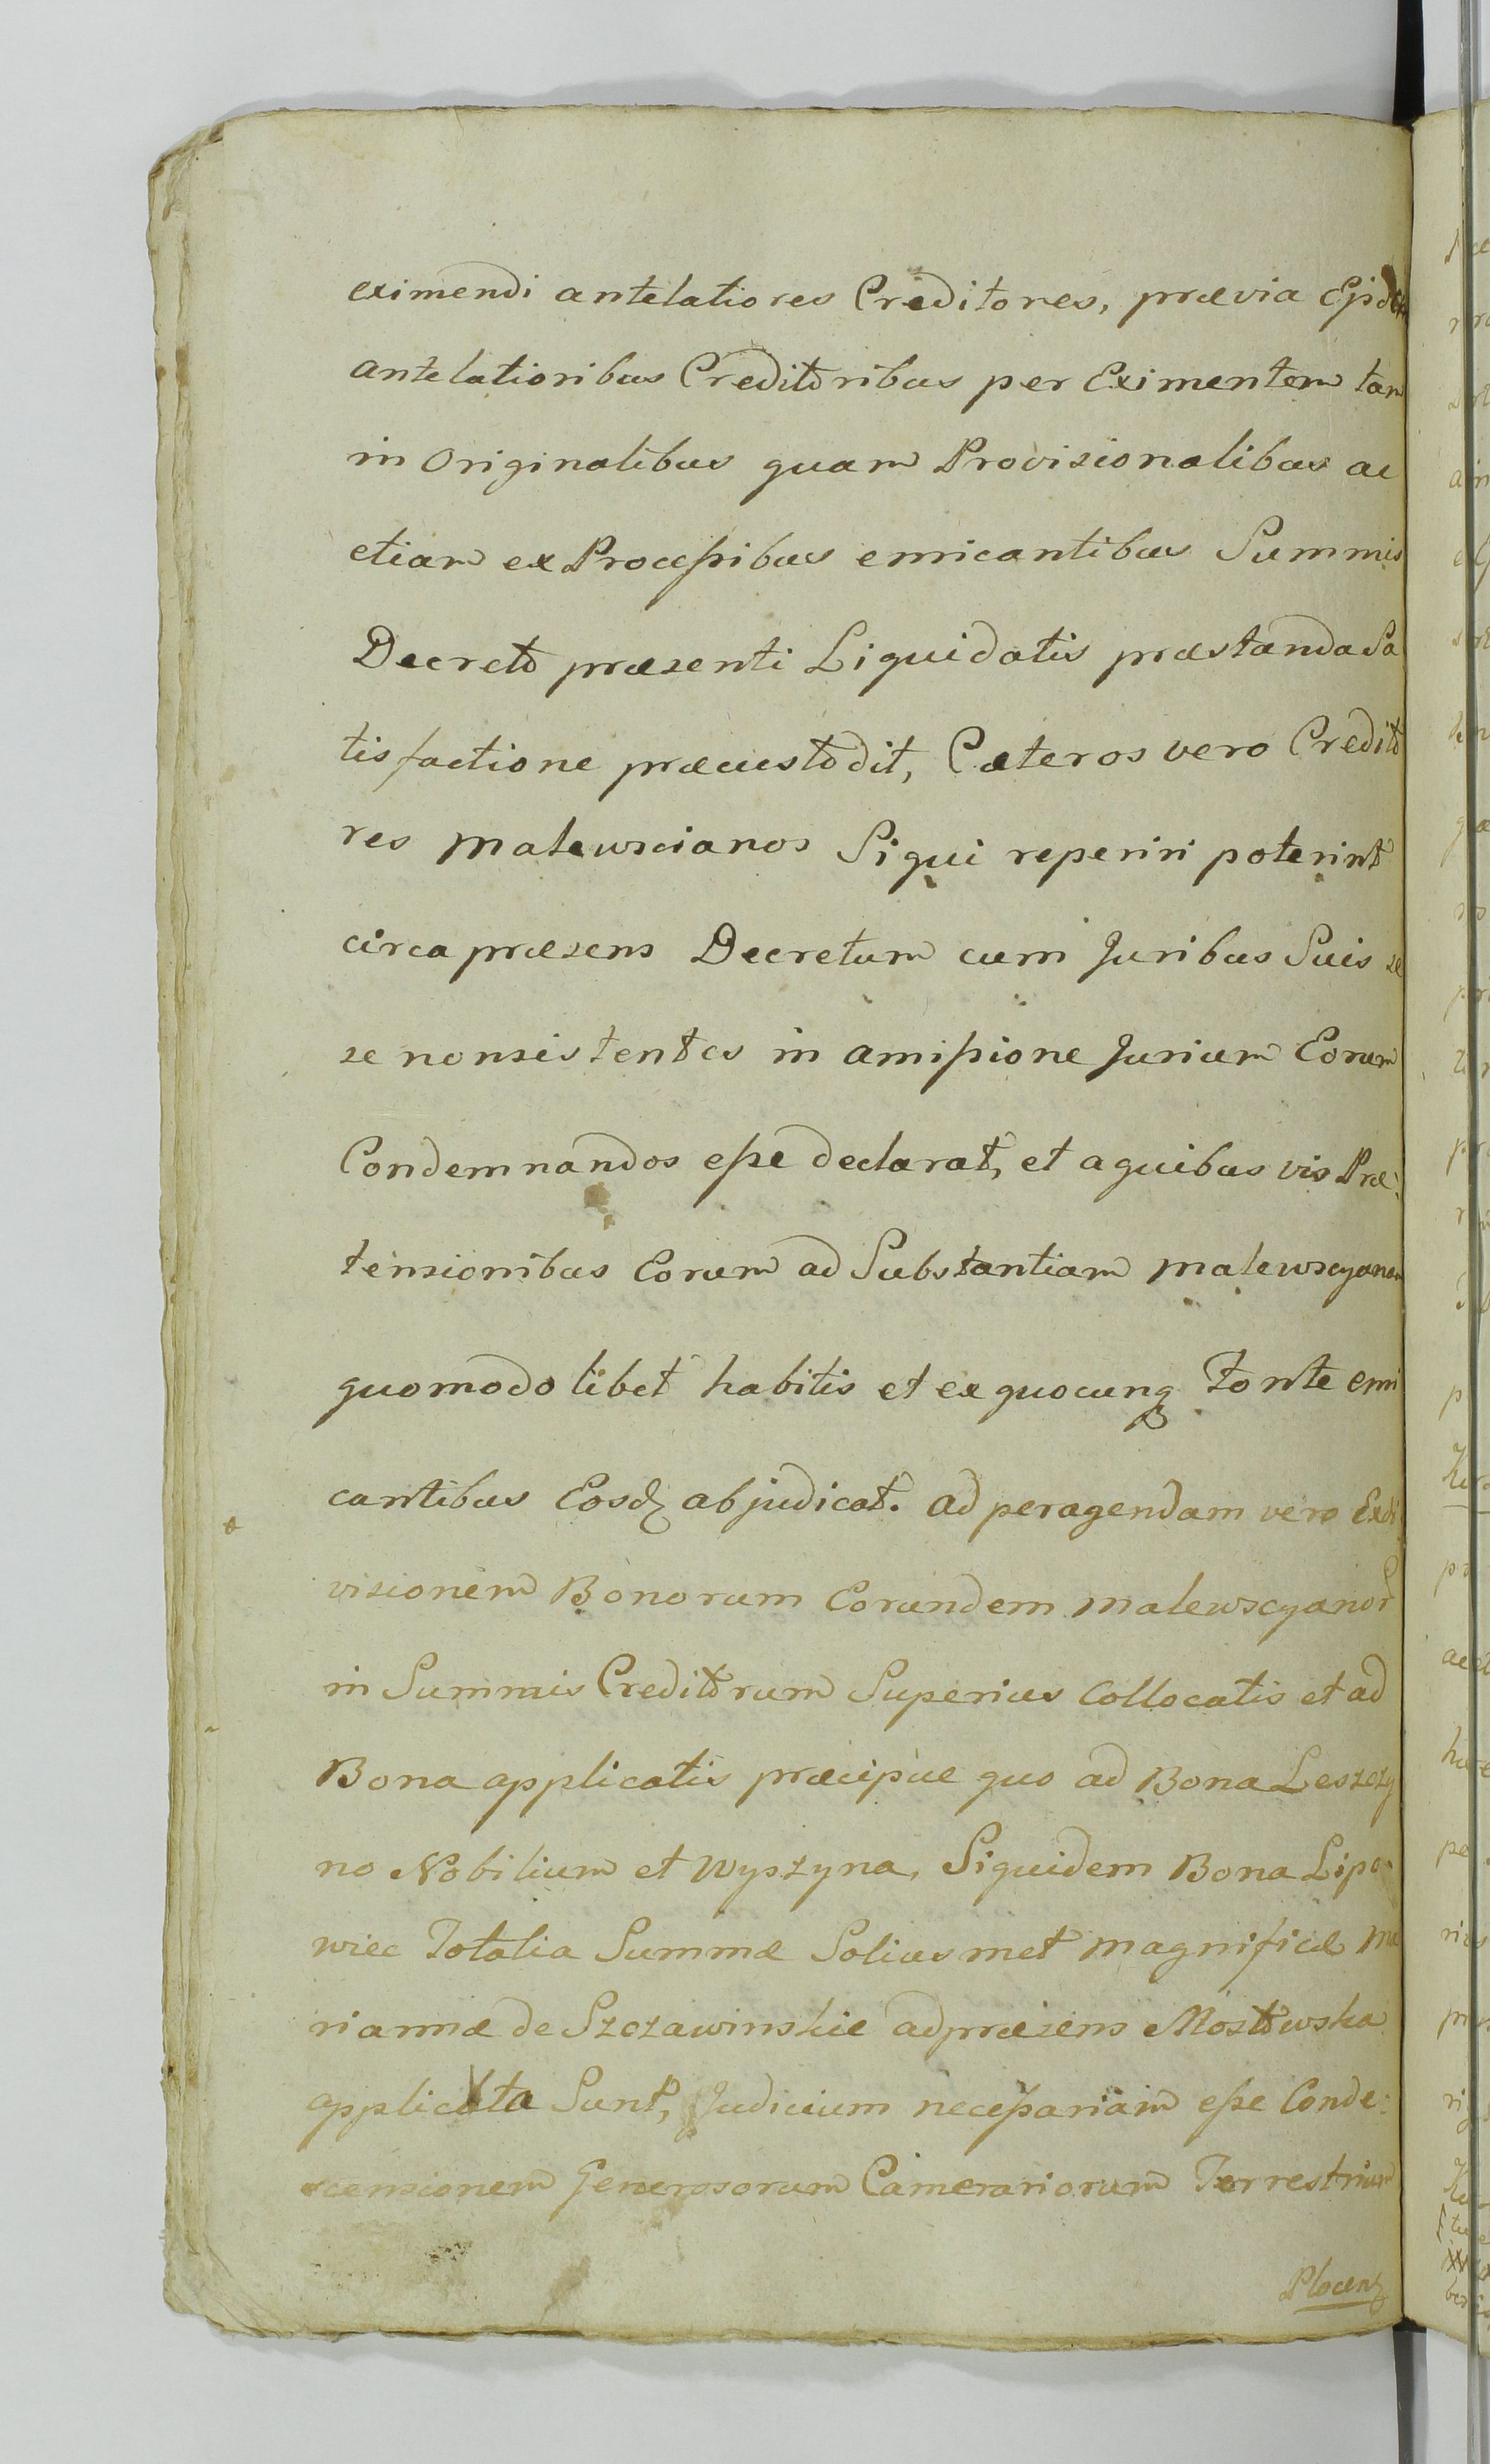 eximendi antelatiores Creditores, prævia Ejsdem
antelatioribus Creditoribus per Eximentem tam
in Originalibus quam Provisionalibus ac
etiam ex Processibus emicantibus Summis
Decreto præsenti Liquidatis præstanda Sa
tisfactione præcustodit, Cæteros vero Credito
res Malewscianos Siqui reperiri poterint
circa præsens Decretum cum Juribus Suis se
se non sistentes in amissione Jurium Eorum
Condemnandos esse declarat, et a quibus vis Præ:
tensionibus Eorum ad Substantiam Malewscyanam
quomodo libet habitis et ex quocunq Fonte emi
cantibus Eosd abjudicat. ad peragendam vero Exdi
visionem Bonorum Eorundem Malewscyanor
in Summis Creditorum Superius Collocatis et ad
Bona applicatis præcipue quo ad Bona Leszczy
no Nobilium et Wyszyna, Siquidem Bona Lipo
wiec Totalia Summæ Solius met Magnificæ Ma
riannæ de Szczawinskie ad præsens Mostowska
applicata Sunt, Judicium necessariam esse Conde:
scensionem Generosorum Camerariorum Terrestrium
Plocen